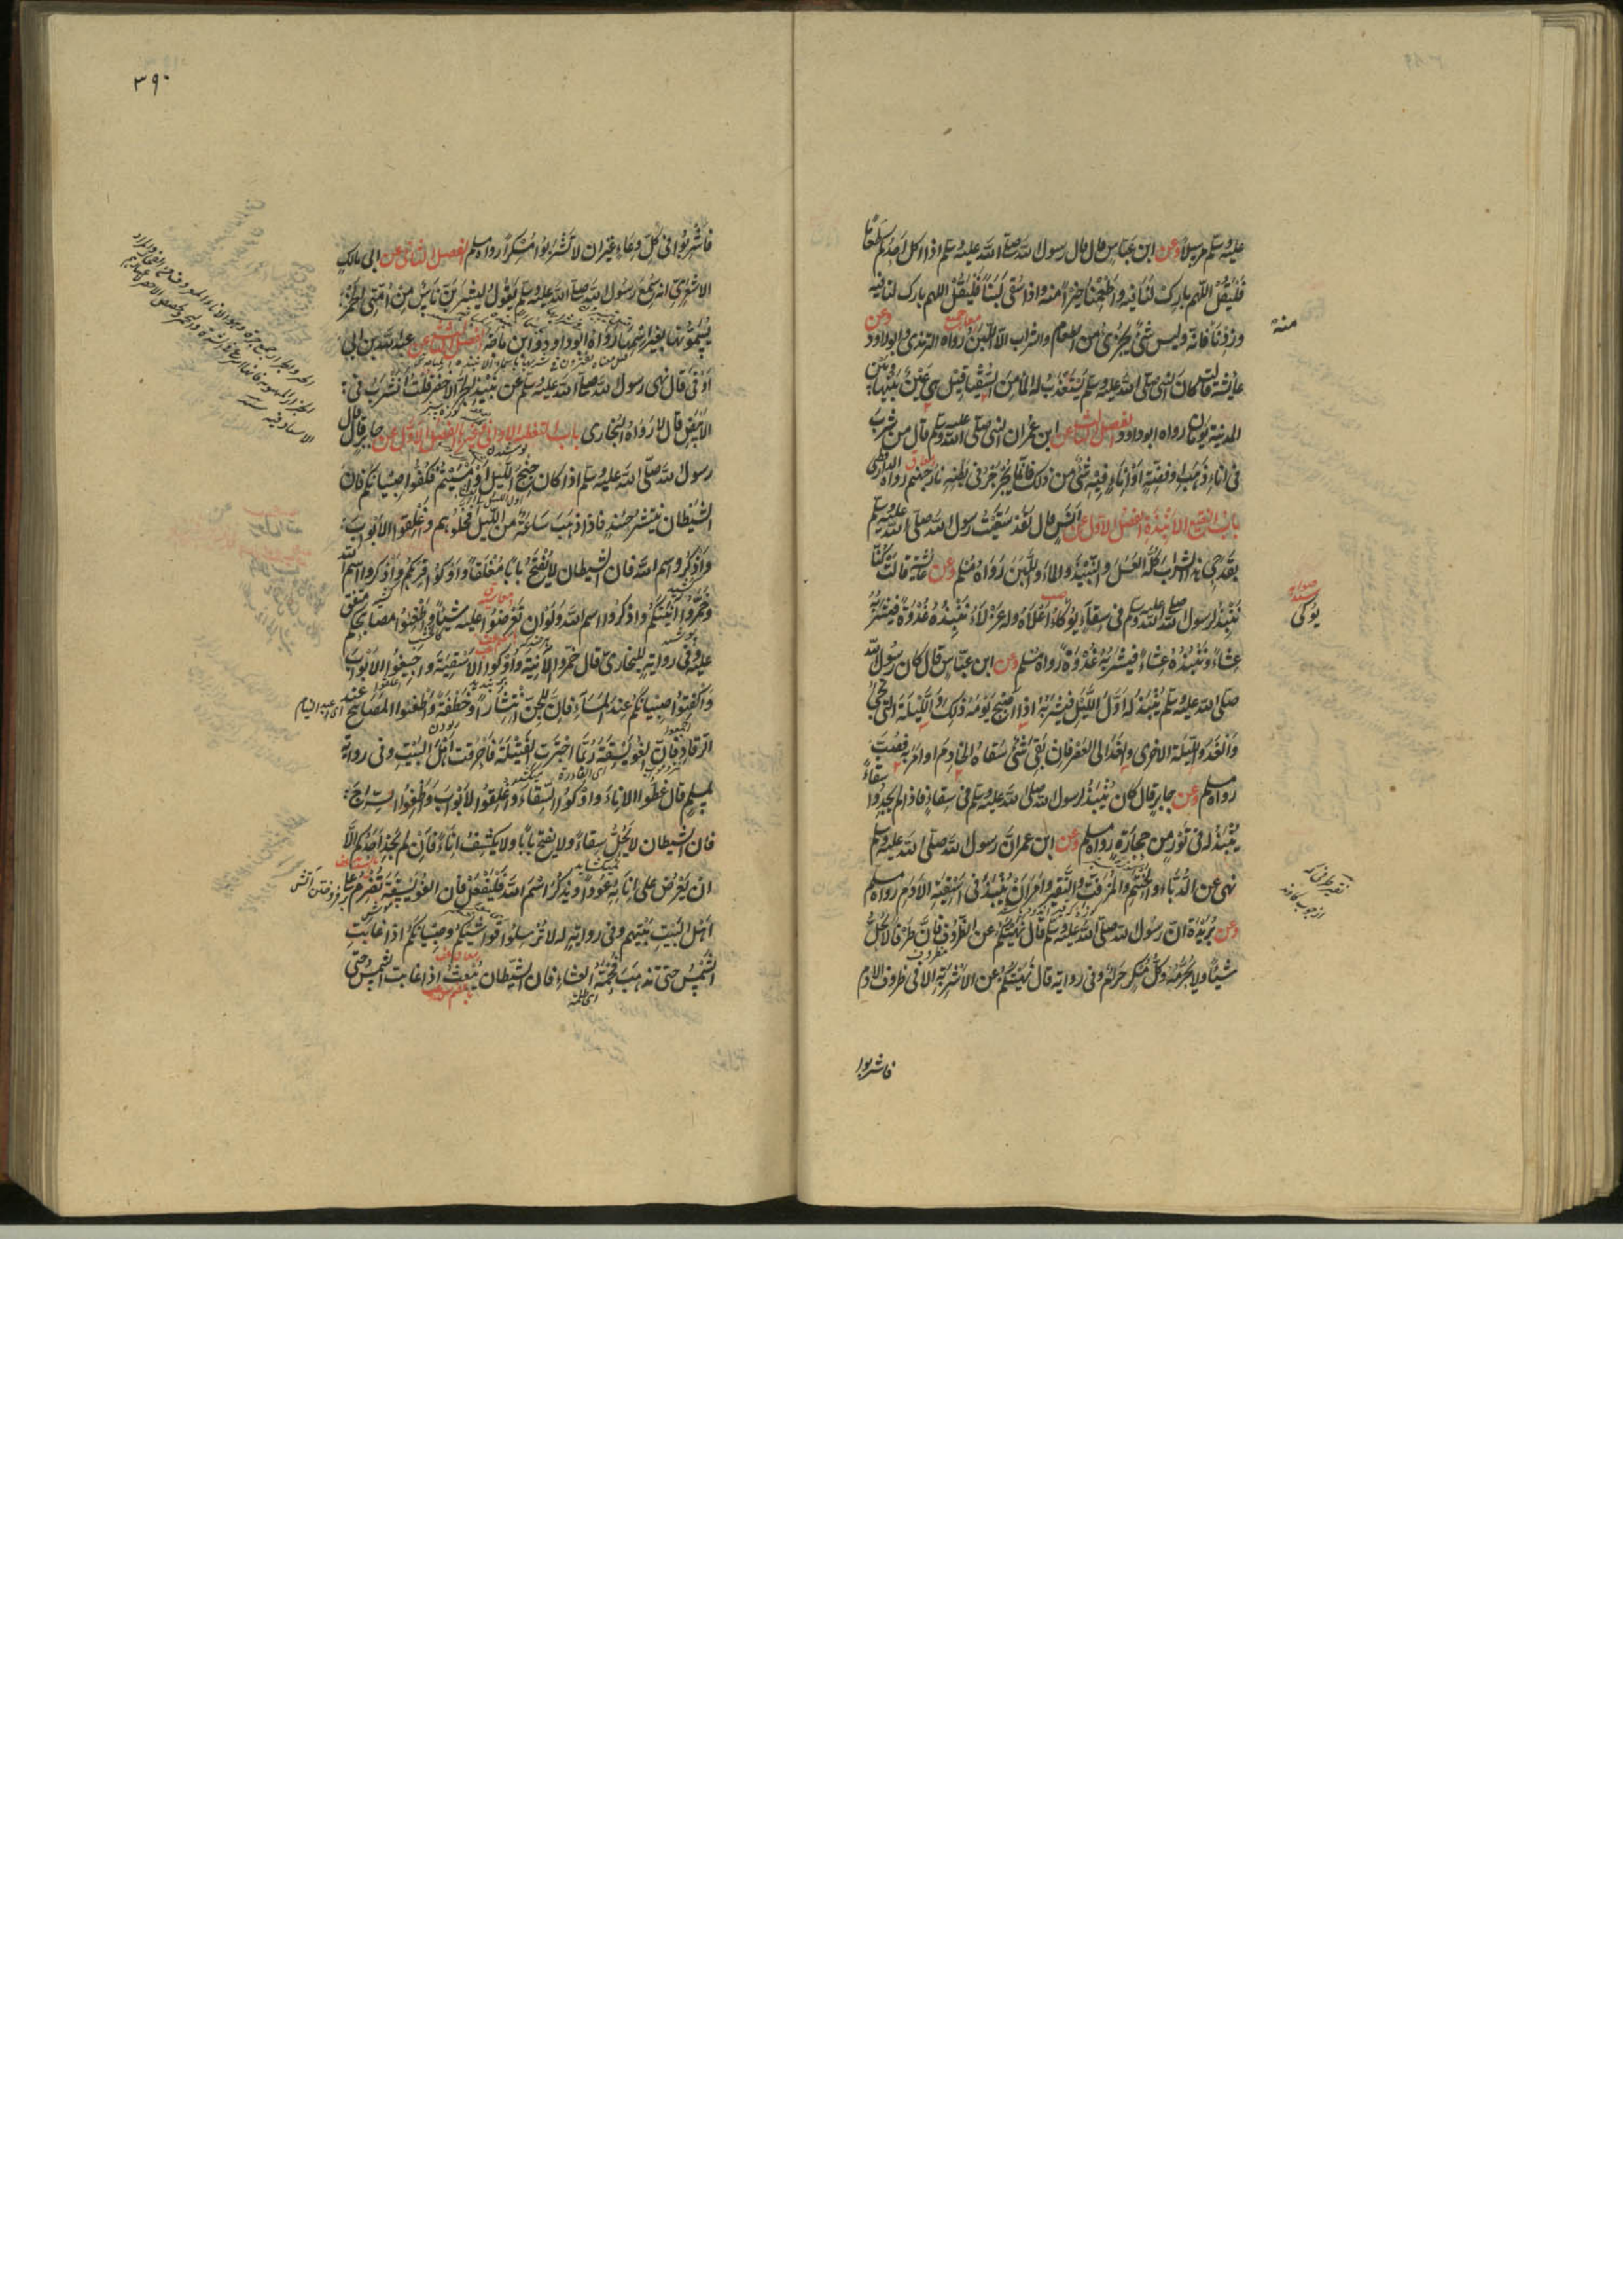 عليه وسلم مرسلا وعن ابن عباس قال قال رسول الله صلى الله عليه وسلم اذا اكل احدكم طعاما
فَلْيَقُلْ اللهم بارك لنا فيه واَطْعِمْنَا خيرًا منه واذا سُقى لَبَنًا فَلْيَقُلْ اللهم بارك لنا فيه
وزِدْنَا منه فانه ليس شئ يجزئ من الطعام والشراب الا اللبن رواه الترمذى وابوداود وعن
عايشة قالت كان النبى صلى الله عليه وسلم يستعذب له الماء من السقيا قيل هى عين بينها وبين
المدينة يومان رواه ابوداود الفصل الثالث عن ابن عمران النبى صلى الله عليه وسلم قال من شرب
فى اناء ذهب او فضة او اناء فيه شئ من ذلك فانما يجرجر فى بطنه نار جهنم رواه الدارقطنى
باب النقيع والانبذة الفصل الاول عن انس قال لقد سقيت رسول الله صلى الله عليه وسلم
بقدحى هذا الشراب كله العسل والنبيذ والماء واللبن رواه مسلم وعن عائشة قالت كنا
ننبذ لرسول الله صلى الله عليه وسلم فى سقاء يوكاء اعلاه وله عزلاء ننبذه غدوة فيشربه
عشاء وننبذه عشاء فيشربه غدوة رواه مسلم وعن ابن عباس قال كان رسول الله
صلى الله عليه وسلم ينبذ له اول الليل فيشربه اذا اصبح يومه ذلك والليلة التى تجئ
والغد والليلة الاخرى والغد الى العصر فان بقى شئ سقاه الخادم او امر به فصب
رواه مسلم وعن جابر قال كان ينبذ لرسول الله صلى الله عليه وسلم فى سقاء فاذا لم يجدوا سقاء
ينبذ له فى تور من حجارة رواه مسلم وعن ابن عمران رسول الله صلى الله عليه وسلم
نهى عن الدباء والحنتم والمزفت والنقير وامر ان ينبذ فى اسقية الادم رواه مسلم
وعن بريدة ان رسول الله صلى الله عليه وسلم قال نهيتكم عن الظروف فان ظرفا لا يحل
شيئا ولا يحرمه وكل مسكر حرام وفى رواية قال نهيتكم عن الاشربة الا فى ظروف الادم
فاشربوا
منه
يوكى
٣٩٠
فاشربوا فى كل وعاء غير ان لا تشربوا مسكرا رواه مسلم الفصل الثانى عن ابى مالك
الاشعرى انه سمع رسول الله صلى الله عليه وسلم يقول ليشربن ناس من امتى الخمر
يسمونها بغير اسمها رواه ابوداود وابن ماجه الفصل الثالث عن عبد الله بن ابى
اوفى قال نهى رسول الله صلى الله عليه وسلم عن نبيذ الجر الاخضر قلت انشرب فى
الابيض قال لا رواه البخارى باب تغطية الاوانى وغيرها الفصل الاول عن جابر قال قال
رسول الله صلى الله عليه وسلم اذا كان جنح الليل او امسيتم فكفوا صبيانكم فان
الشيطان ينتشر حينئذ فاذا ذهب ساعة من الليل فخلوهم واغلقوا الابواب
واذكروا اسم الله فان الشيطان لا يفتح بابا مغلقا واوكوا قربكم واذكروا اسم الله
وخمروا آنيتكم واذكروا اسم الله ولو ان تعرضوا عليه شيئا واطفئوا مصابيحكم متفق
عليه وفى رواية للبخارى قال خمروا الآنية واوكوا الاسقية واجيفوا الابواب
واكفتوا صبيانكم عند المساء فان للجن انتشارا وخطفة واطفئوا المصابيح عند
الرقاد فان الفويسقة ربما اجترت الفتيلة فاحرقت اهل البيت وفى رواية
لمسلم قال غطوا الاناء واوكوا السقاء واغلقوا الابواب واطفئوا السراج
فان الشيطان لا يحل سقاء ولا يفتح بابا ولا يكشف اناء فان لم يجد احدكم الا
ان يعرض على انائه عودا ويذكر اسم الله فليفعل فان الفويسقة تضرم على
اهل البيت بيتهم وفى رواية له لا ترسلوا فواشيكم وصبيانكم اذا غابت
الشمس حتى تذهب فحمة العشاء فان الشيطان يبعث اذا غابت الشمس حتى